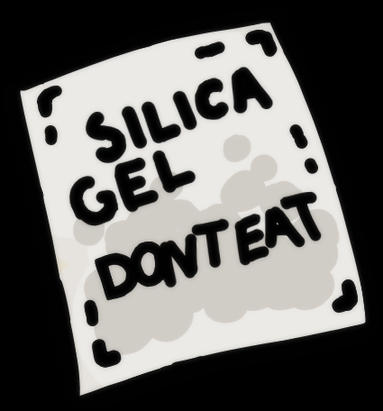 SILICA
GEL
DONT EAT